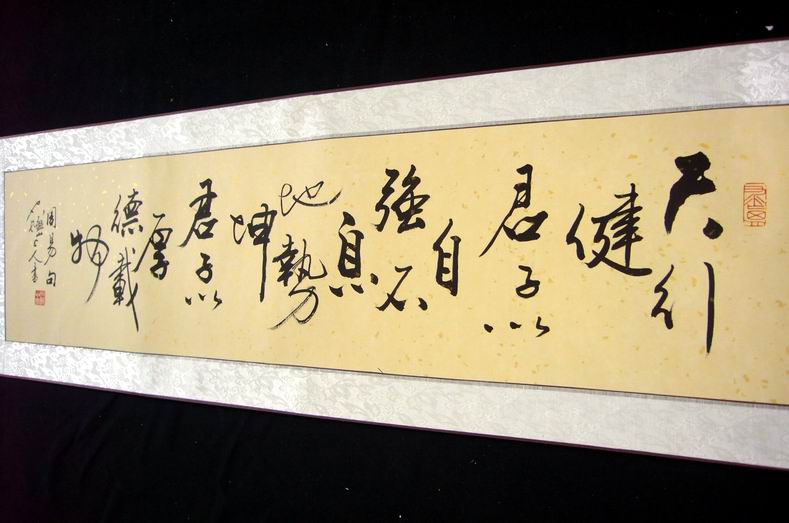 天行
健
君子以
自
強不
息
地勢
坤
君子以
厚
德載
物
周易句